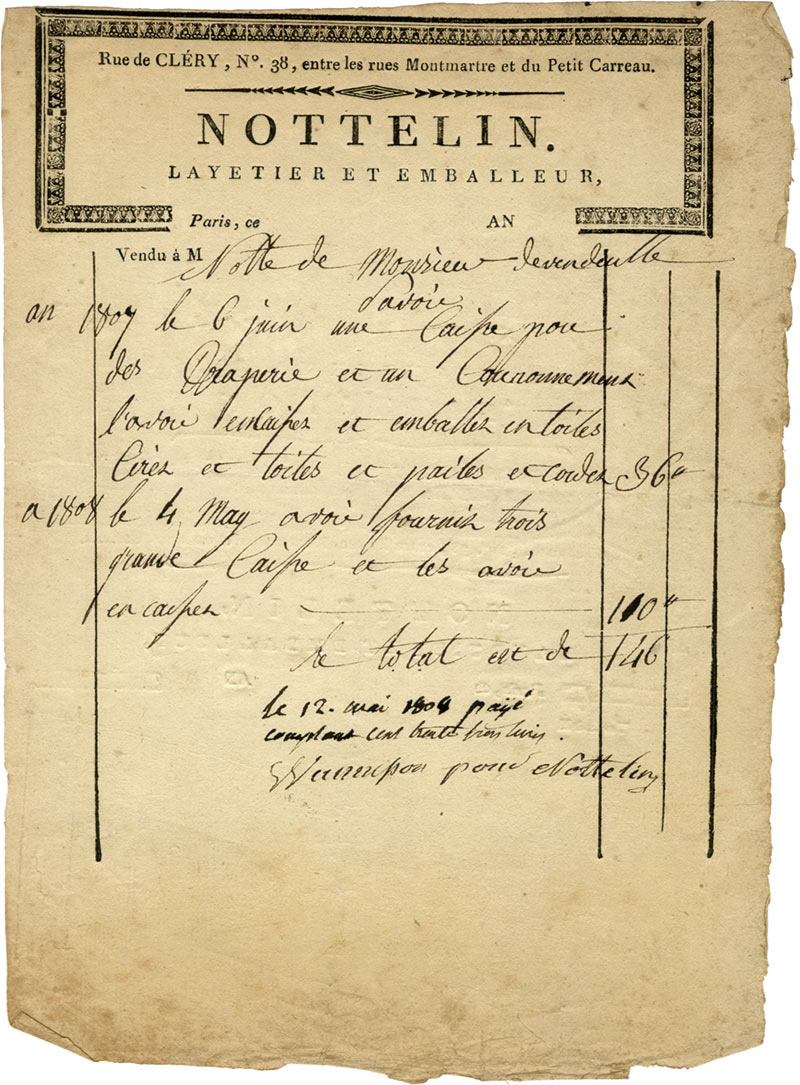 Rue de CLÉRY, N°. 38, entre les rues Montmartre et du Petit Carreau.
NOTTELIN.
LAYETIER ET EMBALLEUR,
Paris, ce AN
Vendu à M Notte de Monsieur devendeulle
davoir
an 1807 le 6 juin une Caisse pour
des Draperie et un Couronnement
l'avoir encaisser et emballer en toiles
Cirez et toiles et pailes et cordes 36 "
a 1808 le 4 May avoir fournis trois
grande Caisse et les avoir
encaisser 110 "
le total est de 146
le 12. mai 1808 payé
comptant cent trente trois livres.
pour Nottelin